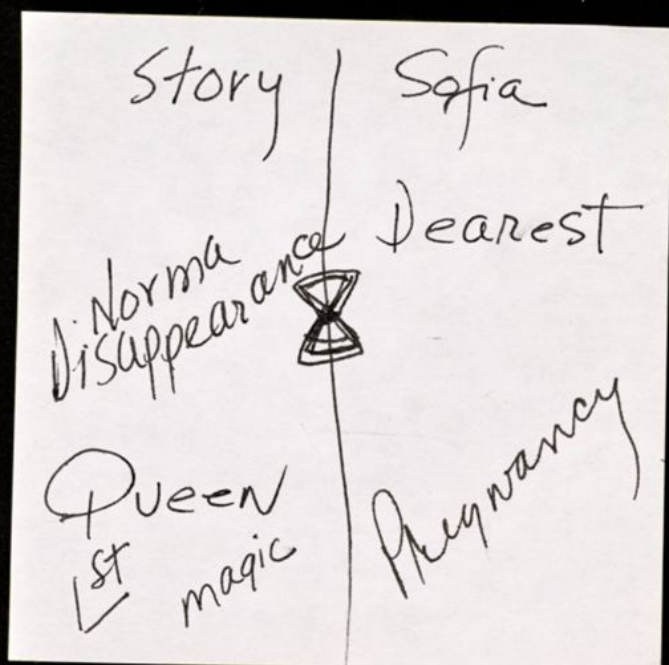 Story
Norma
Disappearance
Queen
1st
magic
Sofia
Dearest
Pregnancy